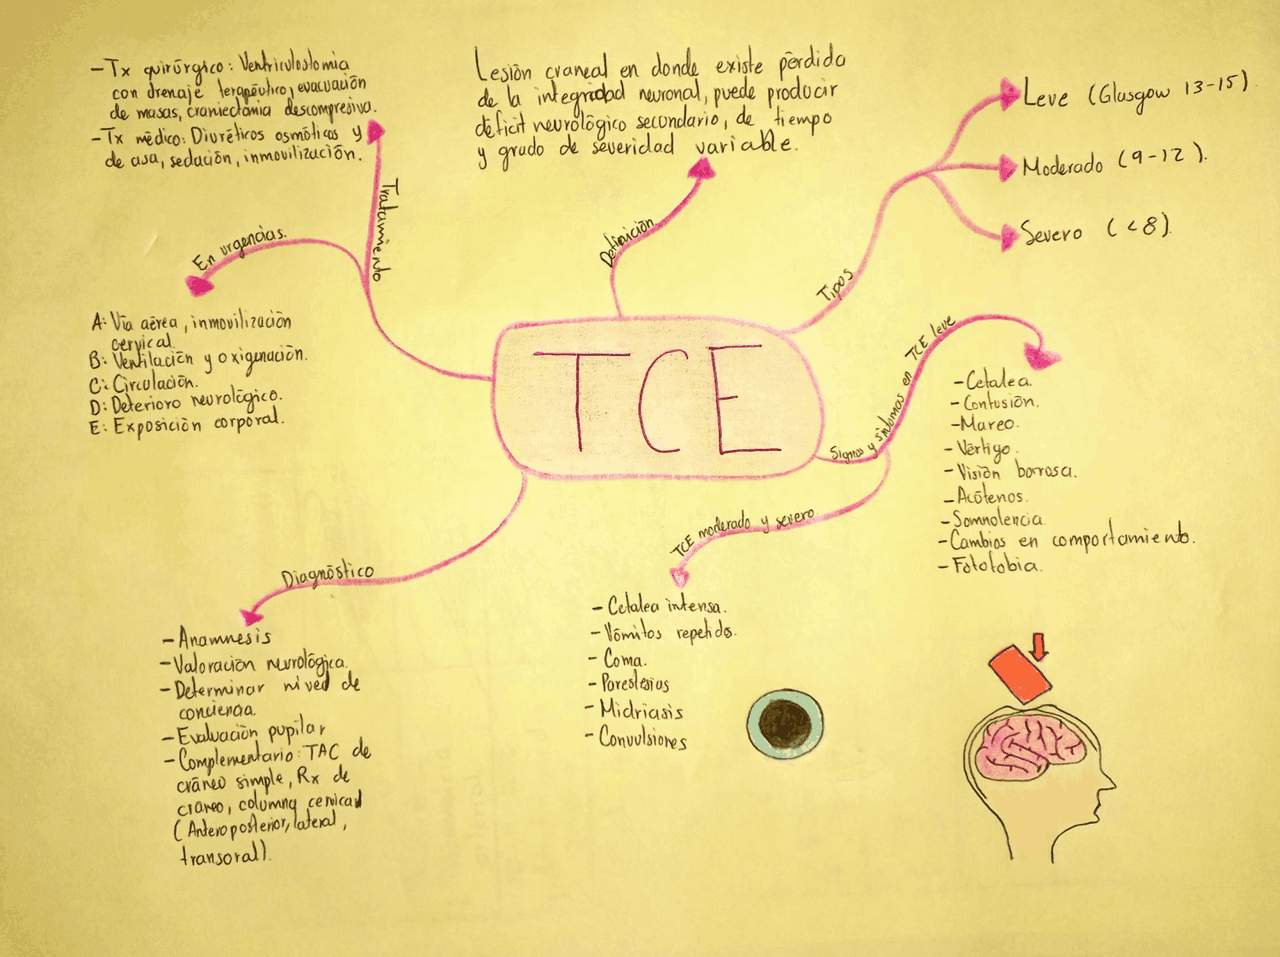 TCE
Definición
Lesión craneal en donde existe pérdida
de la integridad neuronal, puede producir
déficit neurológico secundario, de tiempo
y grado de severidad variable.
Tipos
Leve (Glasgow 13-15).
Moderado (9-12).
Severo (<8).
Signos y síntomas en TCE leve
-Cefalea.
-Confusión.
-Mareo.
-Vértigo.
-Visión borrosa.
-Acúfenos.
-Somnolencia.
-Cambios en comportamiento.
-Fotofobia.
TCE moderado y severo.
-Cefalea intensa.
-Vómitos repetidos.
-Coma.
-Parestesias
-Midriasis
-Convulsiones
Diagnóstico
-Anamnesis
-Valoración neurológica.
-Determinar nivel de
conciencia.
-Evaluación pupilar
-Complementario: TAC de
cráneo simple, Rx de
cráneo, columna cervical
(Anteroposterior, lateral,
transoral).
Tratamiento
-Tx quirúrgico: Ventriculostomia
con drenaje terapéutico, evacuación
de masas, craniectomia descompresiva.
-Tx médico: Diuréticos osmóticos y
de asa, sedación, inmovilización.
En urgencias.
A: Vía aérea, inmovilización
cervical.
B: Ventilación y oxigenación.
C: Circulación.
D: Deterioro neurológico.
E: Exposición corporal.